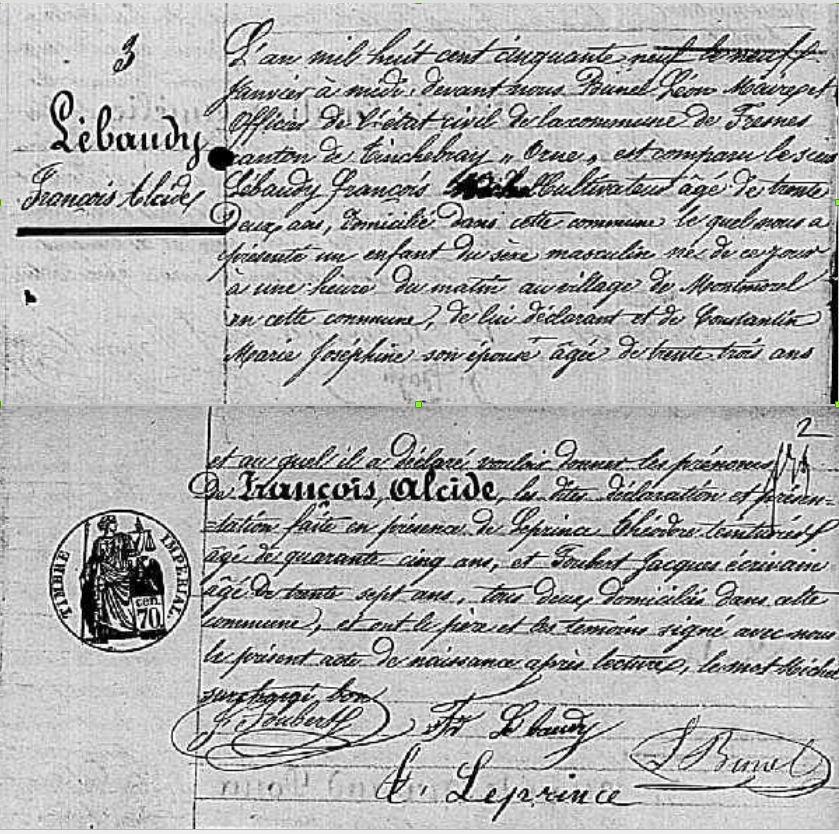 3
Lébaudy
François Alcide
L'an mil huit cent cinquante neuf le neuf
Janvier à midi, devant nous Bunel Léon Maire et
Officier de l'état civil de la commune de Fresnes
canton de Tinchebray „ Orne „ est comparu le sieur
Lébaudy François Michel Cultivateur âgé de trente
Deux ans, Domicilié dans cette commune le quel nous a
présenté un enfant du sèxe masculin né de ce jour
à une heure du matin au village de Montmorel
en cette commune, de lui déclarant et de Constantin
Marie Joséphine son épouse âgée de trente trois ans
2
et au quel il a déclaré vouloir donner les prénoms
De François, Alcide, les dites déclaration et présen-
=tation faite en présence de Leprince Théodore teinturier
âgé de quarante cinq ans, et Joubert Jacques écrivain
âgé de trente sept ans, tous deux domiciliés dans cette
commune, et ont le père et les témoins signé avec nous
le présent acte de naissance après lecture, le mot Michel
surchargé bon
TIMBRE IMPERIAL
70 cen.
J. Joubert Fr Lebaudy L Bunel
t. Leprince